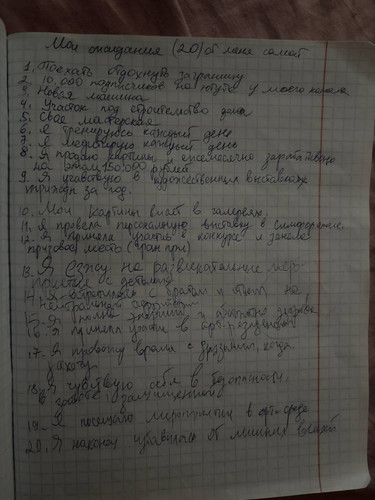 Мои ожидания (20) от меня самой
1. Поехать отдохнуть заграницу
2. 10,000 подписчиков на ютубе у моего канала
3. Новая машина
4. Участок под строительство дома
5. Своя мастерская
6. Я тренируюсь каждый день
7. Я медитирую каждый день
8. Я продаю картины и ежемесячно зарабатываю
на этом 150.000 рублей
9. Я участвую в художественных выставках
за год.
10. Мои картины висят в галереях
11. Я провела персональную выставку в симферополе
12. Я приняла участие в конкурсе и заняла
призовое место (гран при)
13. Я езжу на развлекательные мер-
приятия с детьми
14. Я встретилась с братом и отцом на
15. Я полна энергии и абсолютно здорова
16. Я приняла участие в арт-резиденции
17. Я провожу время с друзьями, когда
захочу
18. Я чувствую себя в безопасности
и защищенной
19. Я посещаю мероприятия в арт-среде
20. Я наконец избавилась от лишних вещей